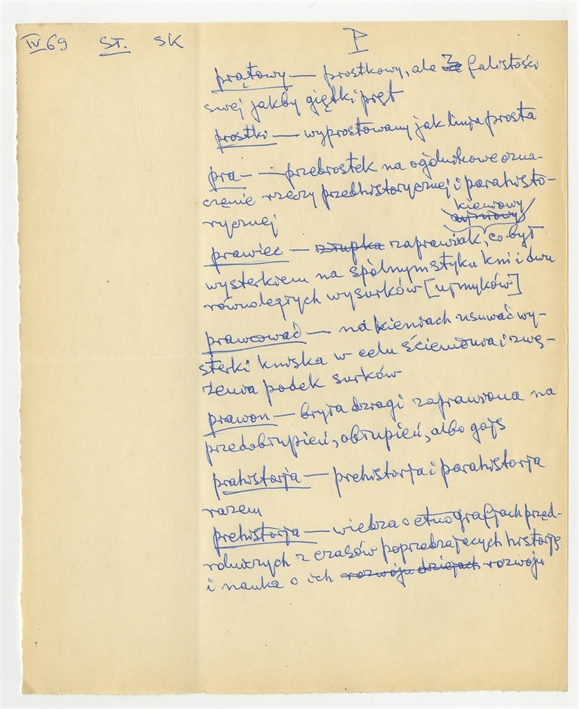 IV 69 ST. SK P
prątowy — prostkowy, ale z falistości
swej jakby giętki pręt
prostko — wyprostowany jak linja prosta
pra- — przebrostek na ogólnikowe ozna-
czenie rzeczy przedhistorycznej i parahisto-
rycznej
kieniowy
prawiec — złupka zaprawiak, co był
wysterkiem na spólnym styku kni i dwu
równoległych wysurków [ujmyków]
prawcować — na kieniach usuwać wy-
sterki kniska w celu ściemowa i zwę-
żenia podek surków
prawon — bryła dzragi zaprawiona na
przedobłupień, obłupień, albo gajs
prahistorja — prehistorja i parahistorja
razem
prehistorja — wiedza o etnografjach przed-
rolniczych z czasów poprzedzających historję
i nauka o ich rozwoju dziejach rozwoju